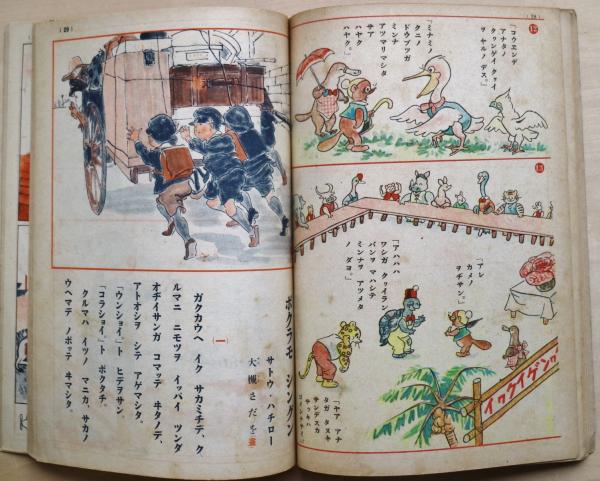 (28)
12
「コウエンデ
アナタノ
クヮンゲイクヮイ
ヲ ヤルノ デス。」
「ミナミノ
クニノ
ドウブツガ
ミンナ
アツマリマシタ
サア
ハヤク
ハヤク。」
13
「アレ
カメノ
ヲヂサン。」
「アハハハ
ワシガ クヮイラン
バンヲ マハシテ
ミンナヲ アツメタ
ノ ダヨ。」
「ヤア アナ
タガ タヌキ
サンデスカ
(29)
ボクラモ シングン
サトウ・ハチロー
大槻さだを畫
(一)
ガクカウヘ イク サカミチデ、ク
ルマニ ニモツヲ イッパイ ツンダ
オヂイサンガ コマッテ ヰタノデ、
アトオシヲ シテ アゲマシタ。
「ウンショイ」ト ヒデヲサン。
「コラショイ」ト ボクタチ。
クルマハ イツノ マニカ、サカノ
ウヘマデ ノボッテ キマシタ。